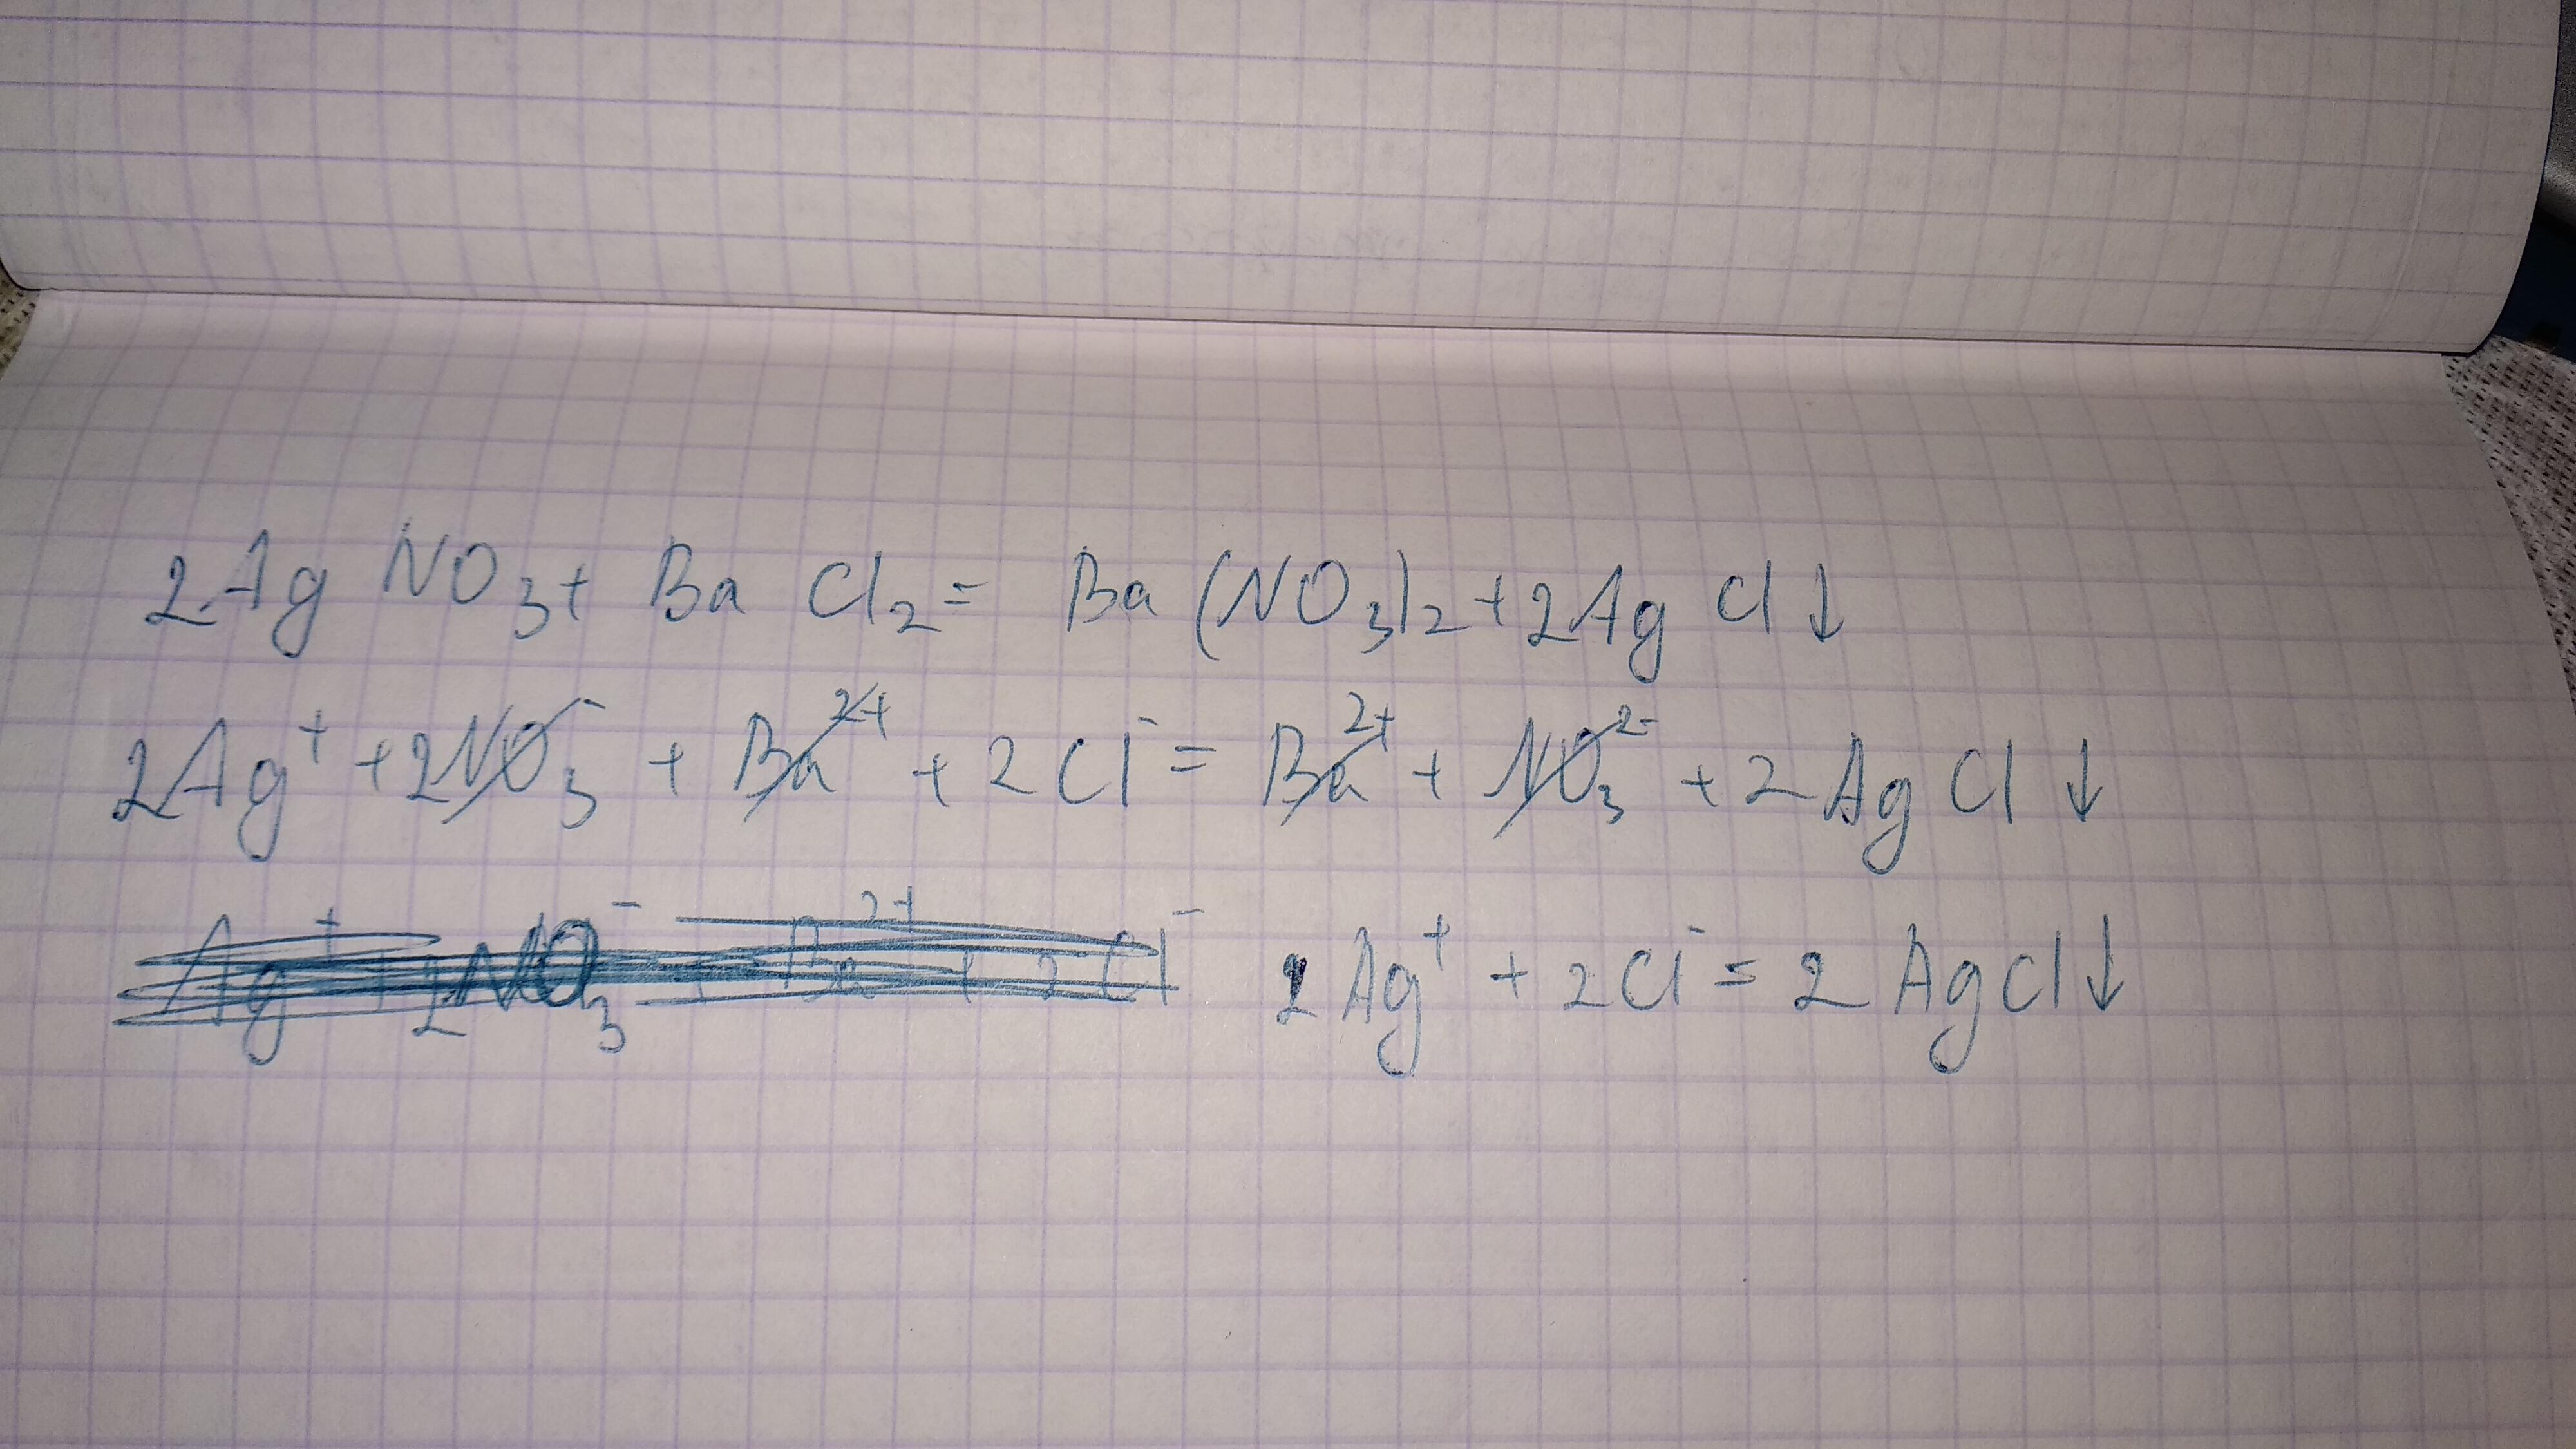 2AgNO₃ + BaCl₂ = Ba(NO₃)₂ + 2AgCl↓
2Ag⁺ + 2NO₃⁻ + Ba²⁺ + 2Cl⁻ = Ba²⁺ + NO₃²⁻ + 2AgCl↓
Ag⁺ + 2NO₃⁻ + Ba²⁺ + 2Cl⁻ 2Ag⁺ + 2Cl⁻ = 2AgCl↓